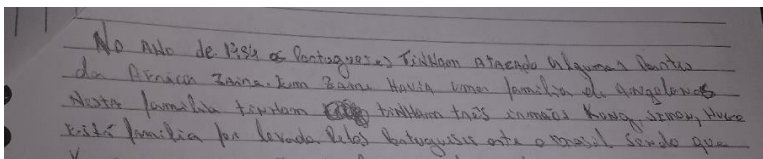 No Ano de 1784 os Portugueses TinHam ATACADO Algumas Partes
da Africa Zaire. Em Zaire Havia uma família de Angolanos
Nesta família tinham tinHam três irmãos Kong, Simon,
Está família foi levada Pelos Portugueses até o Brasil Sendo que